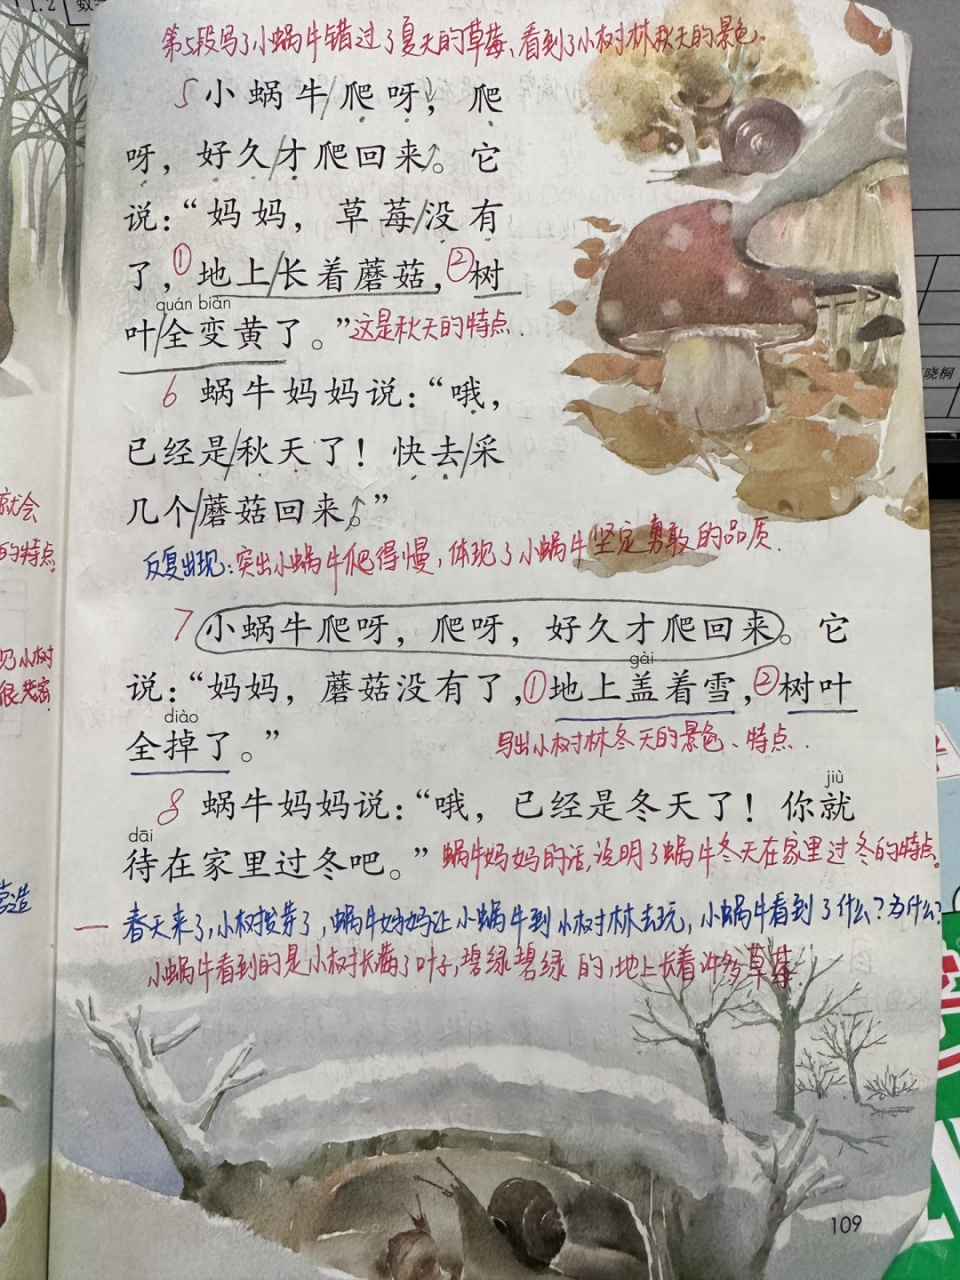 第5段写了小蜗牛错过了夏天的草莓、看到了小树林秋天的景色.
5 小蜗牛/爬呀，爬
呀，好久/才爬回来。它
说：“妈妈，草莓/没有
了，①地上/长着蘑菇，②树
quán biàn
叶/全变黄了。”这是秋天的特点.
6 蜗牛妈妈说：“哦，
已经是/秋天了！快去/采
几个/蘑菇回来。”
反复出现：突出小蜗牛爬得慢，体现了小蜗牛坚定勇敢的品质.
7 小蜗牛爬呀，爬呀，好久才爬回来。它
gài
说：“妈妈，蘑菇没有了，①地上盖着雪，②树叶
diào
全掉了。”
写出小树林冬天的景色、特点.
jiù
8 蜗牛妈妈说：“哦，已经是冬天了！你就
dāi
待在家里过冬吧。”
蜗牛妈妈的话,说明了蜗牛冬天在家里过冬的特点。
一 春天来了,小树发芽了,蜗牛妈妈让小蜗牛到小树林去玩,小蜗牛看到了什么?为什么?
小蜗牛看到的是小树长满了叶子,碧绿碧绿的,地上长着许多草莓.
109
就会
的特点。
小树
营造
晓桐